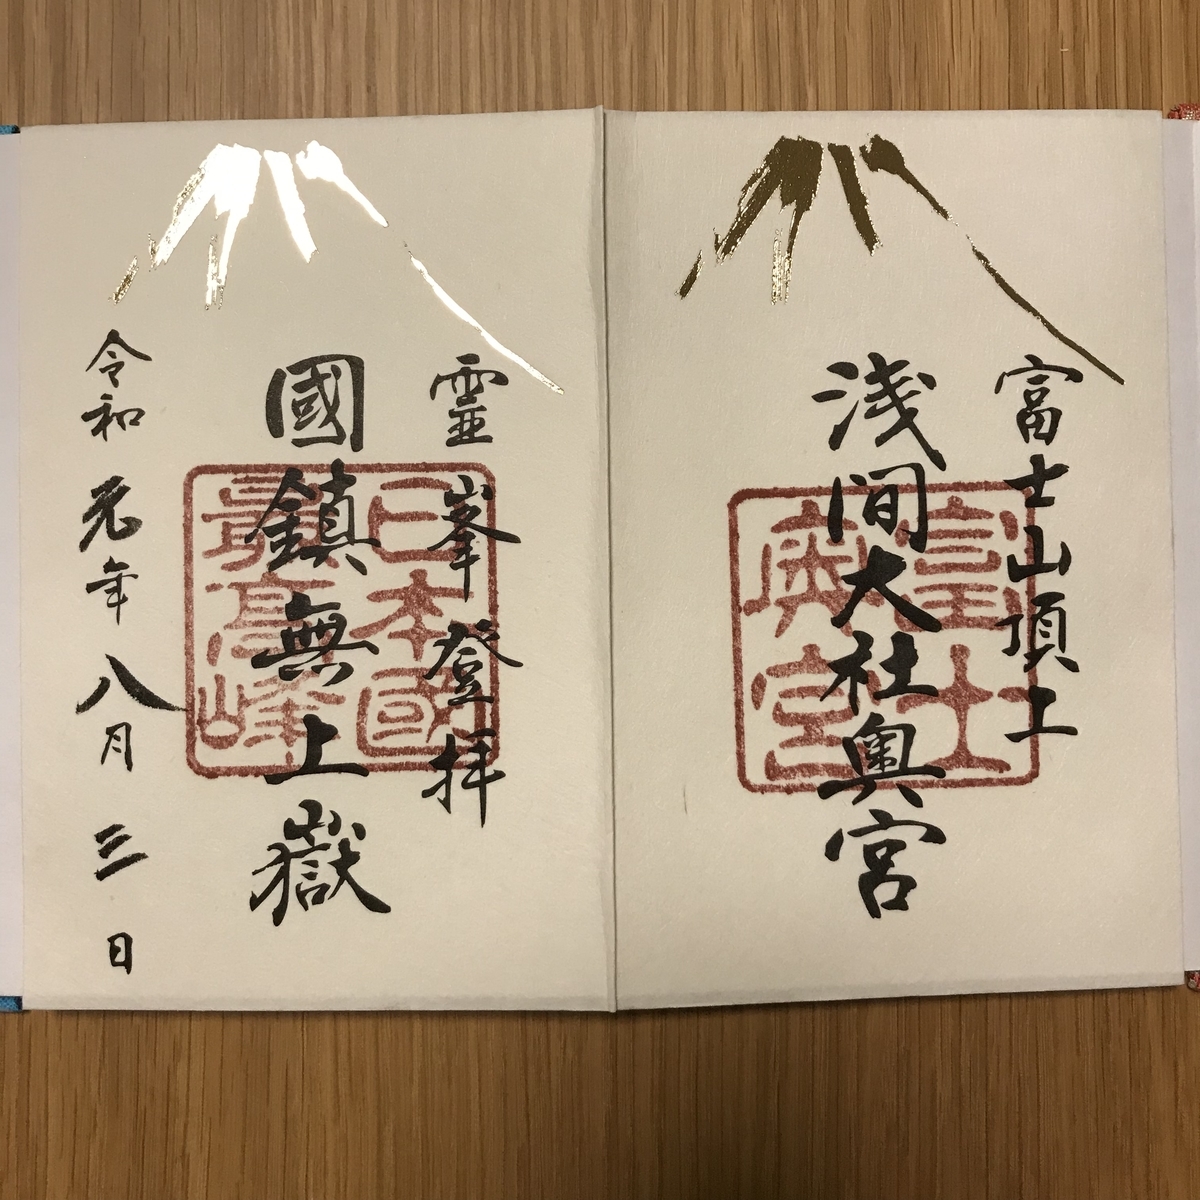 富士山頂上
浅間大社奥宮
富士
奥宮
霊峯登拝
國鎮無上嶽
令和元年八月三日
日本國
最高峰